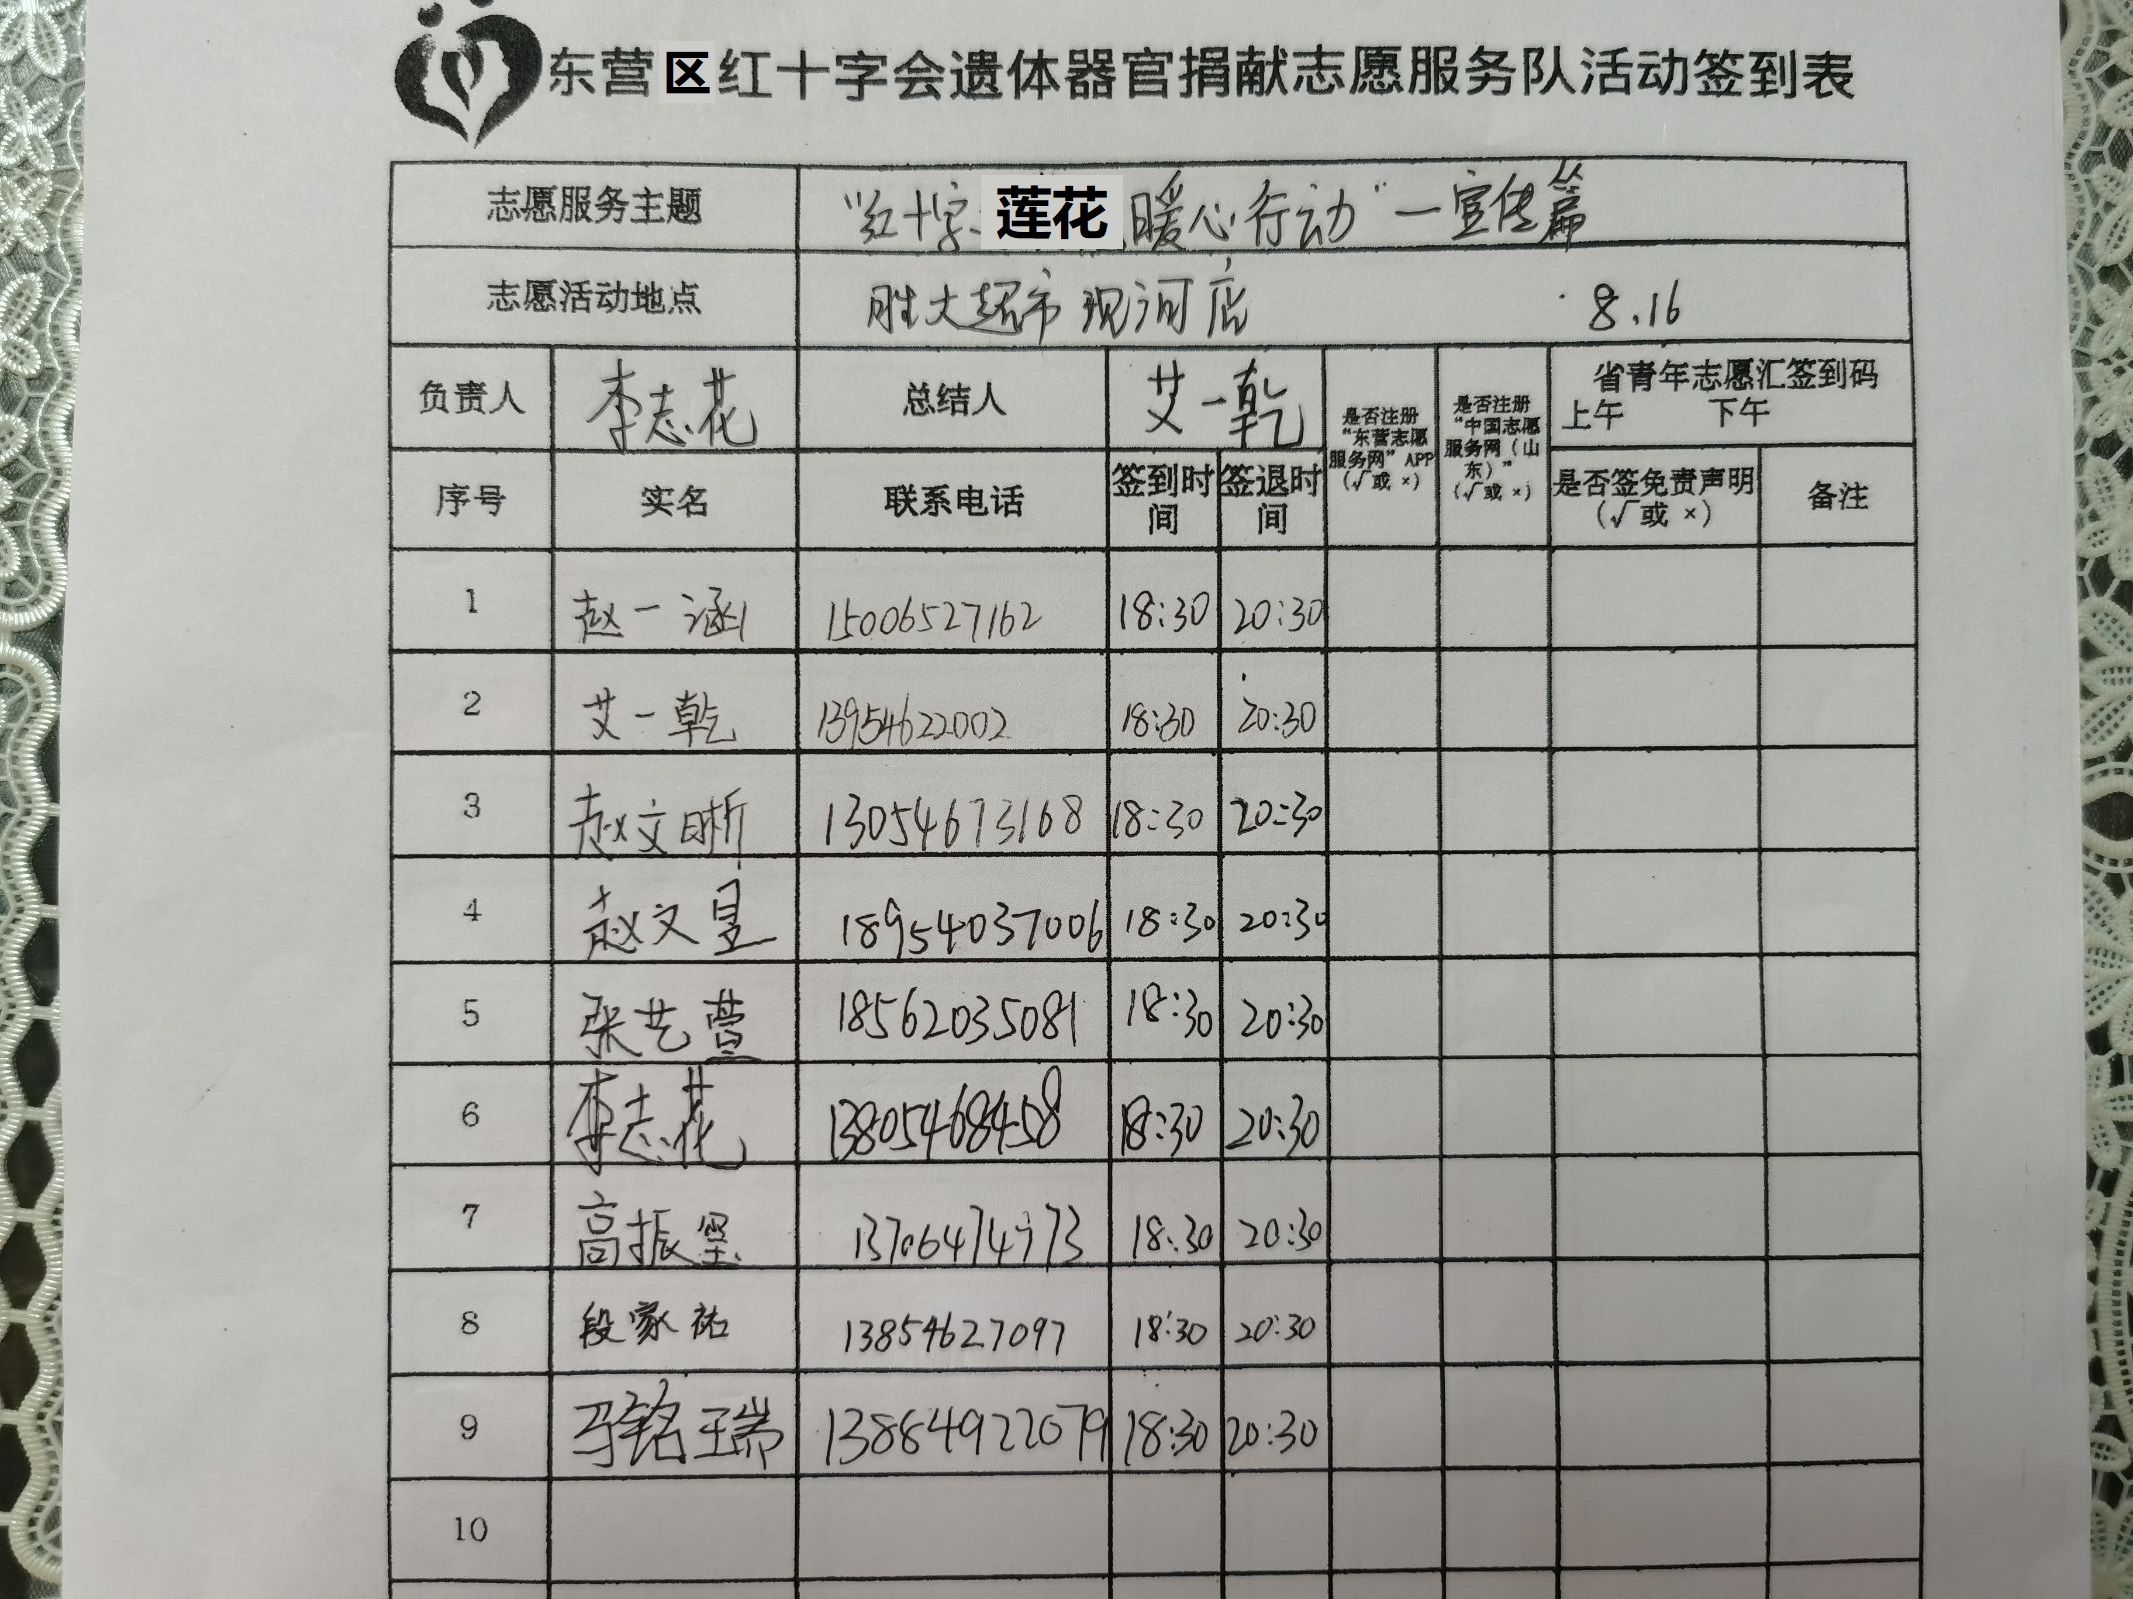 东营区红十字会遗体器官捐献志愿服务队活动签到表
志愿服务主题 “红十字 莲花 暖心行动”一宣传篇
志愿活动地点 胜大超市现河店 8.16
负责人 李志花 总结人 艾一乾 是否注册“东营志愿服务网”APP（√或 ×） 是否注册“中国志愿服务网（山东）”（√或 ×） 省青年志愿汇签到码 上午 下午
序号 实名 联系电话 签到时间 签退时间 是否签免责声明（√或 ×） 备注
1 赵一涵 15006527162 18:30 20:30
2 艾一乾 13954622002 18:30 20:30
3 赵文晰 13054673168 18:30 20:30
4 赵文昱 18954037006 18:30 20:30
5 张艺萱 18562035081 18:30 20:30
6 李志花 13805468458 18:30 20:30
7 高振坚 18:30 20:30
8 段家祐 13854627097 18:30 20:30
9 马铭瑞 13884922079 18:30 20:30
10